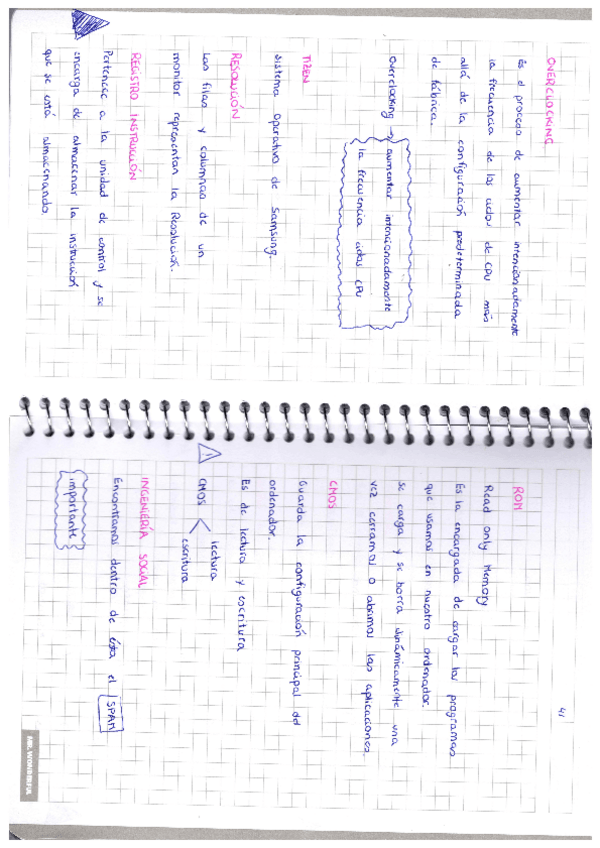 OVERCLOCKING
Es el proceso de aumentar intencionadamente
la frecuencia de los ciclos de CPU más
allá de la configuración predeterminada
de fábrica.
Overclocking → aumentar intencionadamente
la frecuencia ciclos CPU
TIZEN
Sistema Operativo de Samsung.
RESOLUCIÓN
Las filas y columnas de un
monitor representan la Resolución.
REGISTRO INSTRUCCIÓN
Pertenece a la unidad de control y se
encarga de almacenar la instrucción
que se está almacenando.
41
ROM
Read only Memory
Es la encargada de cargar los programas
que usamos en nuestro ordenador.
se carga y se borra dinámicamente una
vez cerramos o abrimos las aplicaciones.
CMOS
Guarda la configuración principal del
ordenador.
Es de lectura y escritura
CMOS < lectura
escritura
INGENIERÍA SOCIAL
Encontramos dentro de ésta el SPAM
importante
MR. WONDERFUL